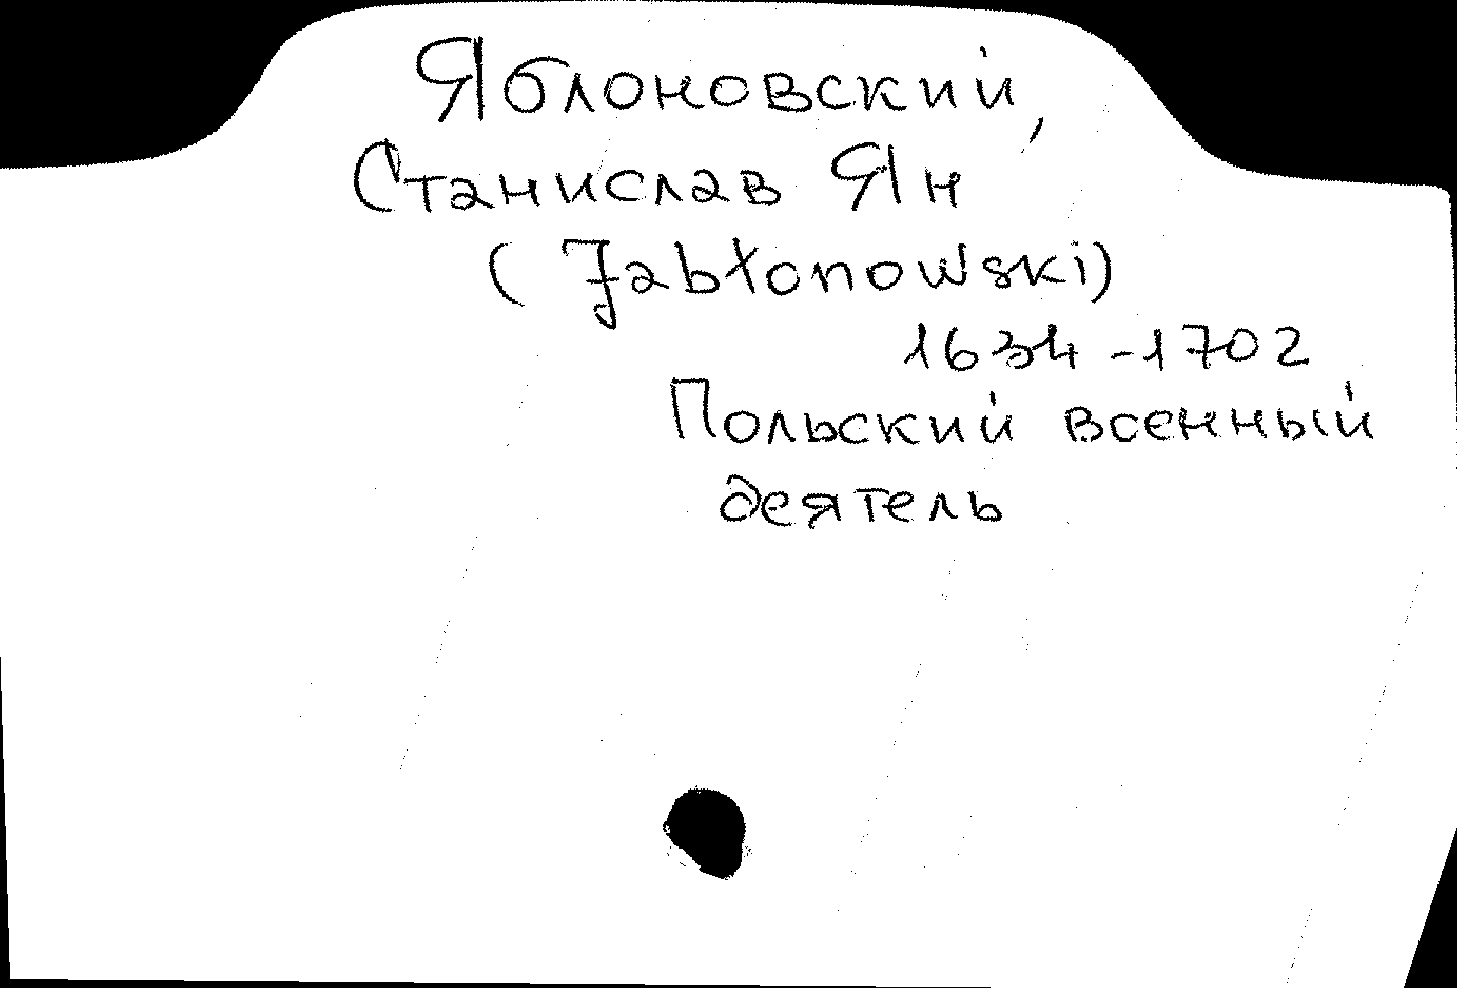 Яблоновский,
Станислав Ян
(Jabłonowski)
1634-1702
Польский военный
деятель